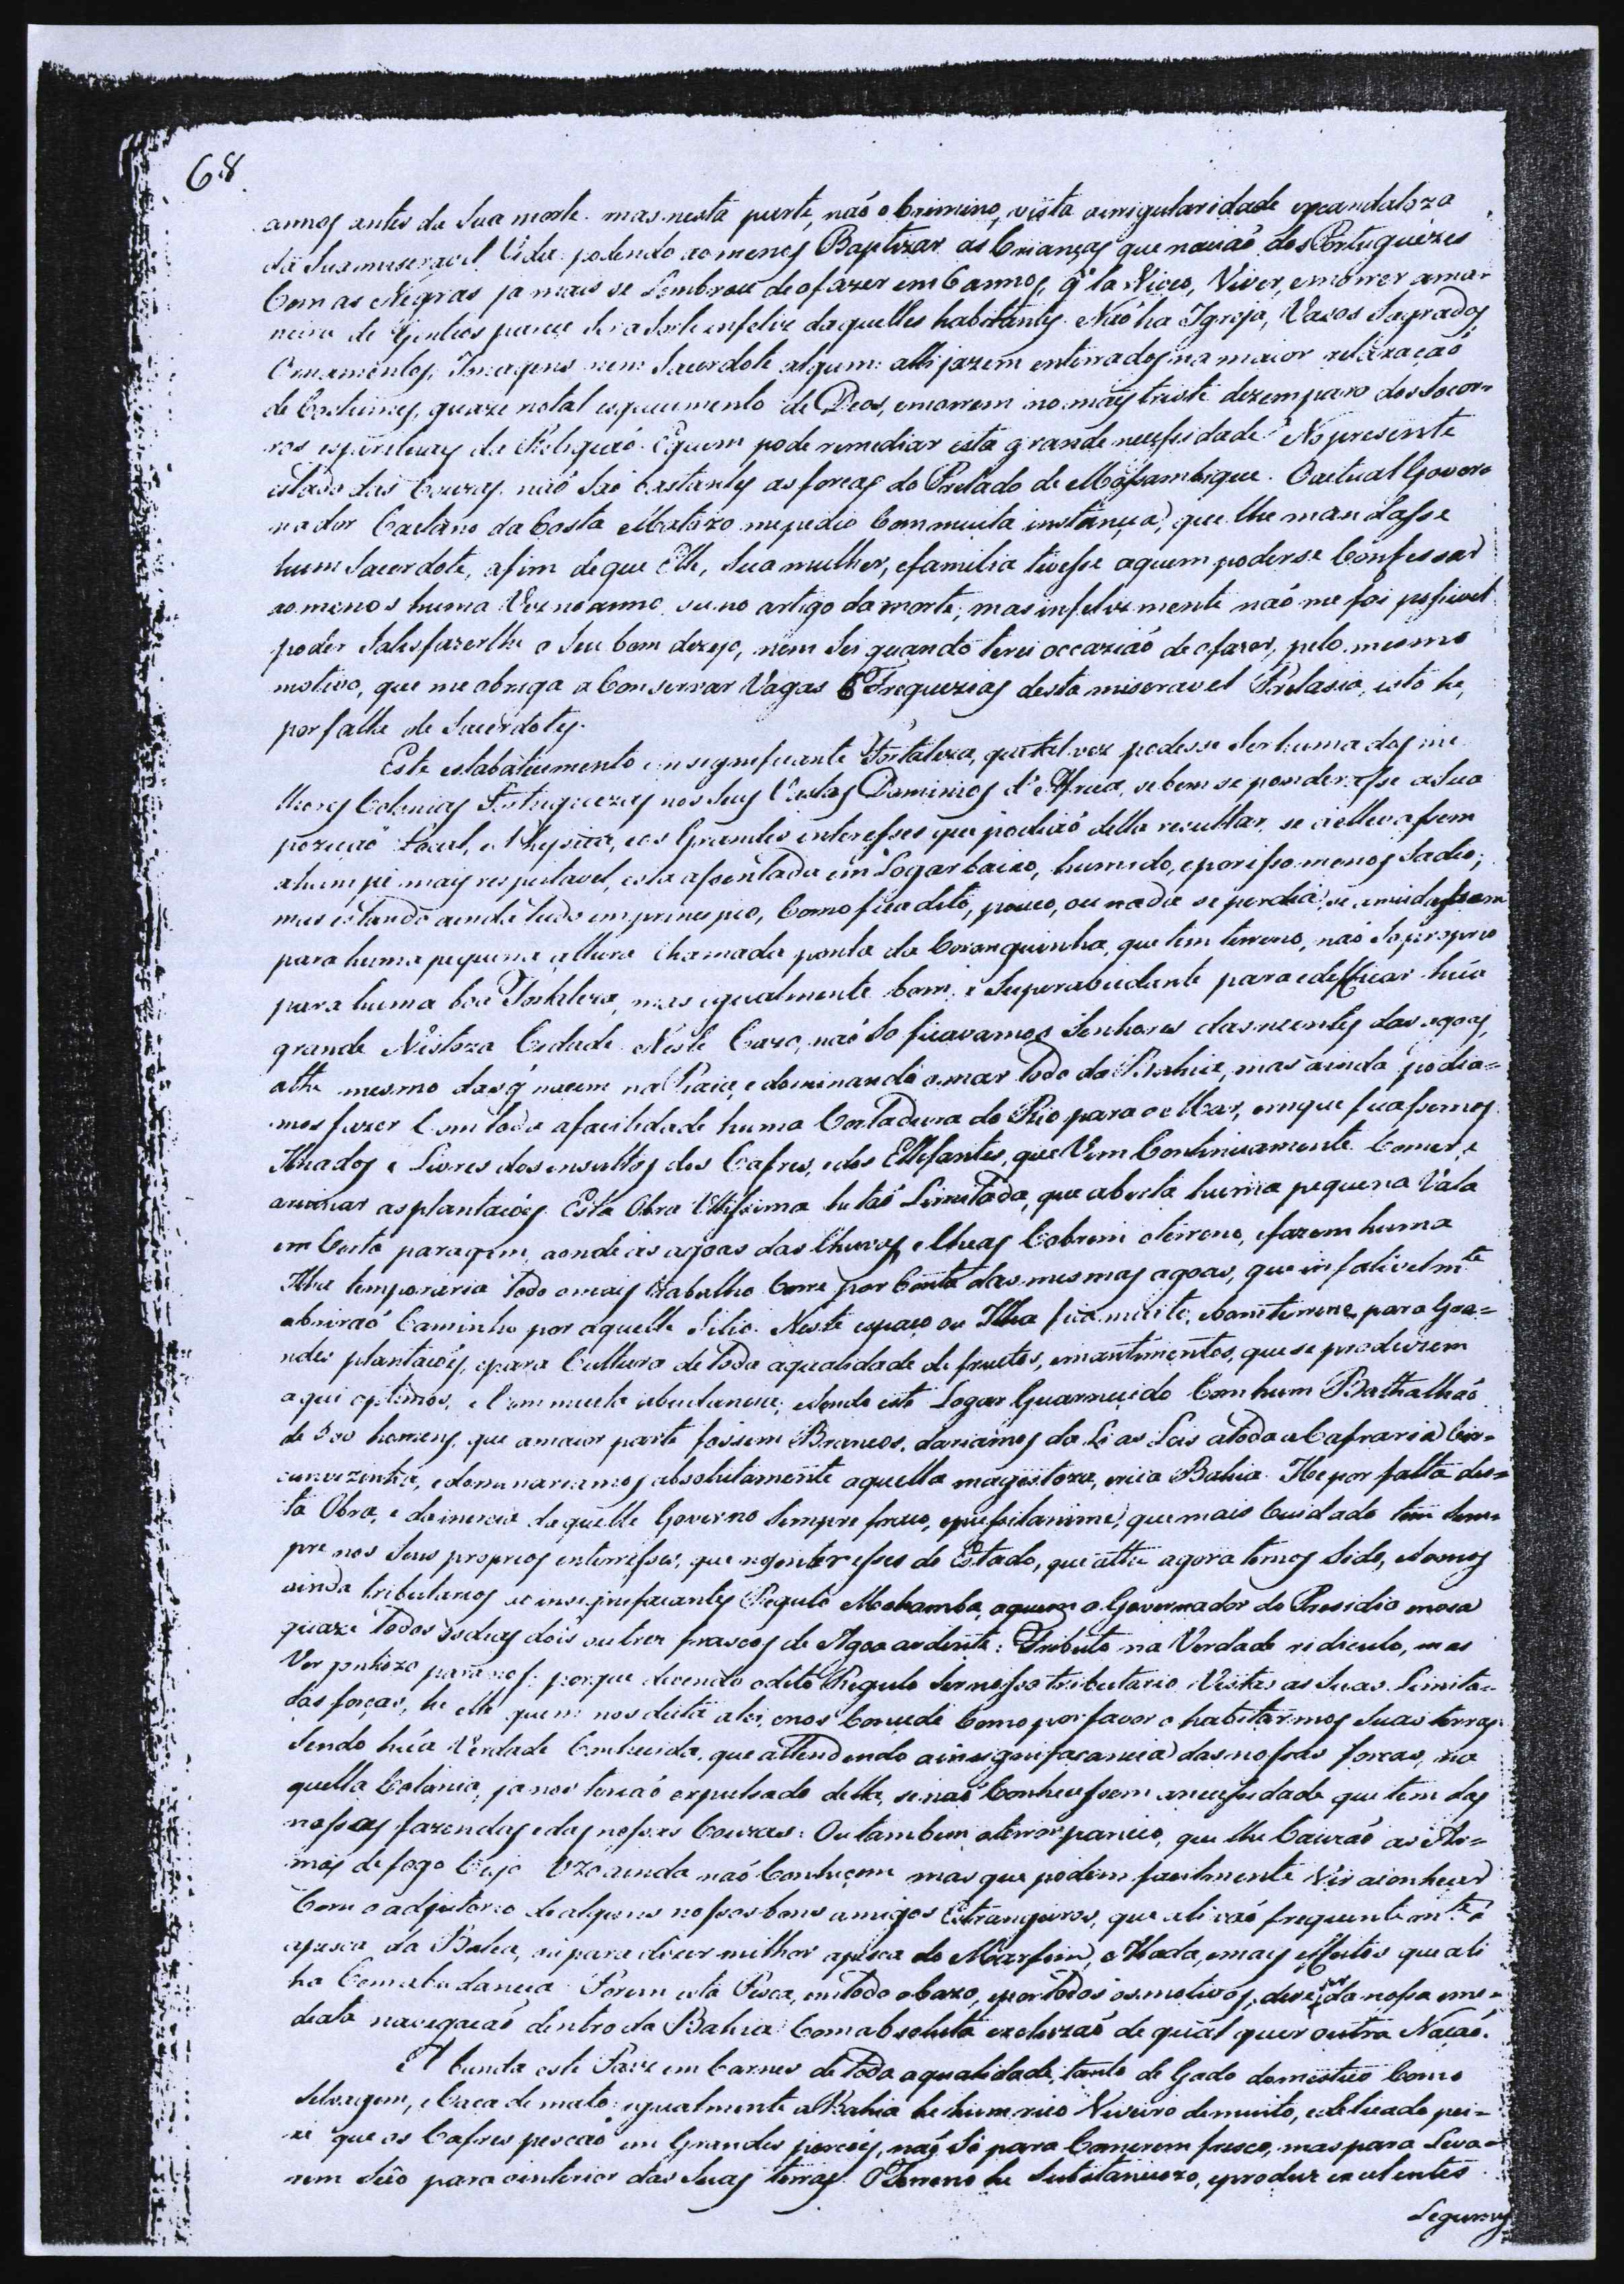 68
annos antes da sua morte. mas nesta parte, naõ o Crimino, vista a irrigularidade escandaloza
da sua miseravel Vida: podendo ao menos Baptizar as Crianças que naciaõ dos Portuguezes
Com as Negras ja mais se Lembrou de o fazer em 6 annos, q̃ la Viveo, Viver, e morrer a ma-
neira de Gentios parece ser a Sorte infeliz daquelles habitantes. Naõ ha Igreja, Vazos Sagrados,
Ornamentos, Imagens nem Sacerdote algum: alli jazem enterrados na maior relaxaçaõ
de Costumes, quaze n'otal esquecimento de Deos, e morrem no mais triste dezemparo dos Socor-
ros espirituaes da Religiaõ. E quem pode remediar esta grande necessidade? No presente
estado das Couzas naõ Saõ bastantes as forças do Prelado de Mossambique. O actual Gover-
nador Caetano da Costa Matozo me pedio Com muita instancia, que lhe mandasse
hum Sacerdote, a fim de que Elle, Sua mulher, e familia tivesse a quem poderse Confessar
ao menos huma Vez no anno, ou no artigo da morte, mas infelizmente naõ me foi possivel
poder Satisfazerlhe o Seu bom dezejo, nem Sei quando terei occaziaõ de o fazer, pelo mesmo
motivo, que me obriga a Conservar Vagas 6 Freguezias desta miseravel Prelasia, isto he,
por falta de Sacerdotes.
Este estabalicimento insignificante Fortaleza, que talvez podesse Ser huma das mi-
lhores Colonias Portuguezas nos Seus Vastos Dominios d'Africa, se bem se ponderasse a Sua
poziçaõ Local, e Phyzica, e os Grandes interesses que podiaõ della rezultar, se a ellevassem
a hum pé mais respeitavel, esta assentada em Logar baixo, humido, e por isso menos Sadio;
mas estando ainda tudo em principio, Como fica dito, pouco, ou nada se perdia, se a mudassem
para huma pequena altura chamada ponta da Coranquinha, que tem terreno, naõ So proprio
para huma boa Fortaleza, mas igualmente bom e Superabudante para edifficar húa
grande Vistoza Cidade. Neste Cazo, naõ So ficavamos Senhores das nacentes das agoas,
athe mesmo das q̃ nacem na Praia, e dominando o mar todo da Bahia, mas ainda podia=
mos fazer Com toda a facilidade huma Cortadura do Rio para o Mar, em que ficassemos
Ilhados e Livres dos insultos dos Cafres, e dos Ellefantes, que Vem Continuamente Comer, e
arruinar as plantaçoẽs. Esta Obra Utilissima he taõ Limitada, que aberta huma pequena Vala
em Certa paragem, aonde as agoas das Chuvas, e Cheas Cobrem o terreno, e fazem huma
Ilha temporaria todo o mais trabalho Corre por Conta das mesmas agoas, que infalivelm.te
abriraõ Caminho por aquelle Sitio. Neste espaço ou Ilha fica muito, e bom terreno para Gra=
ndes plantaçoẽs, e para Cultura de toda a qualidade de fructos, e mantimentos, que se produzem
aqui optimos, e Com muita abundancia; e Sendo este Logar Guarnecido Com hum Bathalhaõ
de 300 homens, que a maior parte fossem Brancos, dariamos da Li as Leis a toda a Cafraria Cir=
cunvezinha, e dominariamos absolutamente aquella magestoza, e rica Bahia. He por falta des=
ta Obra, e da inercia daquelle Governo Sempre fraco, e pussilanime, que mais Cuidado tem Sem=
pre nos Seus proprios interresses, que nos interesses do Estado, que athe agora temos Sido, e Somos
ainda tributarios ao insignificante Regulo Mohamba, a quem o Governador do Presidio envia
quaze todos os dias dois ou tres frascos de Agoa ardente: Tributo na Verdade ridiculo, mas
Vergonhozo para nos: porque devendo o dito Regulo Ser nosso tributario, Vistas as Suas Limita=
das forças, he elle quem nos dicta a lei, e nos Concede Como por favor o habitarmos Suas terras
Sendo húa Verdade Conhecida, que attendendo a insignificancia das nossas forças, na
quella Colonia, ja nos teriaõ expulsado della, se naõ Conhecessem a necessidade que tem das
nossas fazendas e das nossas Couzas: Ou tambem o terror panico, que lhe Cauzaõ as Ar=
mas de fogo Cujo Uzo ainda naõ Conheçem mas que podem facilmente Vir a conhecer
Com o adjutorio de alguns nossos bons amigos Estrangeiros, que ali vaõ frequentem.te á
a pesca da Balea, ou para dizer milhor a pesca do Marfim, e Abada, e mais effeitos que ali
ha Com abudancia. Porem esta Pesca, em todo o Cazo, e por todos os motivos, deve ser da nossa ime=
diata navegaçaõ dentro da Bahia Com absoluta excluzaõ de qual quer outra Naçaõ.
Abunda este Paiz em Carnes de toda a qualidade, tanto de Gado domestico Como
Selvagem, e Caca de mato: igualmente a Bahia he hum rico Viveiro de muito, e delicado pei=
xe que os Cafres pescaõ em Grandes porçoẽs, naõ Só para Comerem fresco, mas para Leva=
rem Sêco para o interior das Suas terras. O Terreno he Substanciozo, e produz excelentes
Legumes